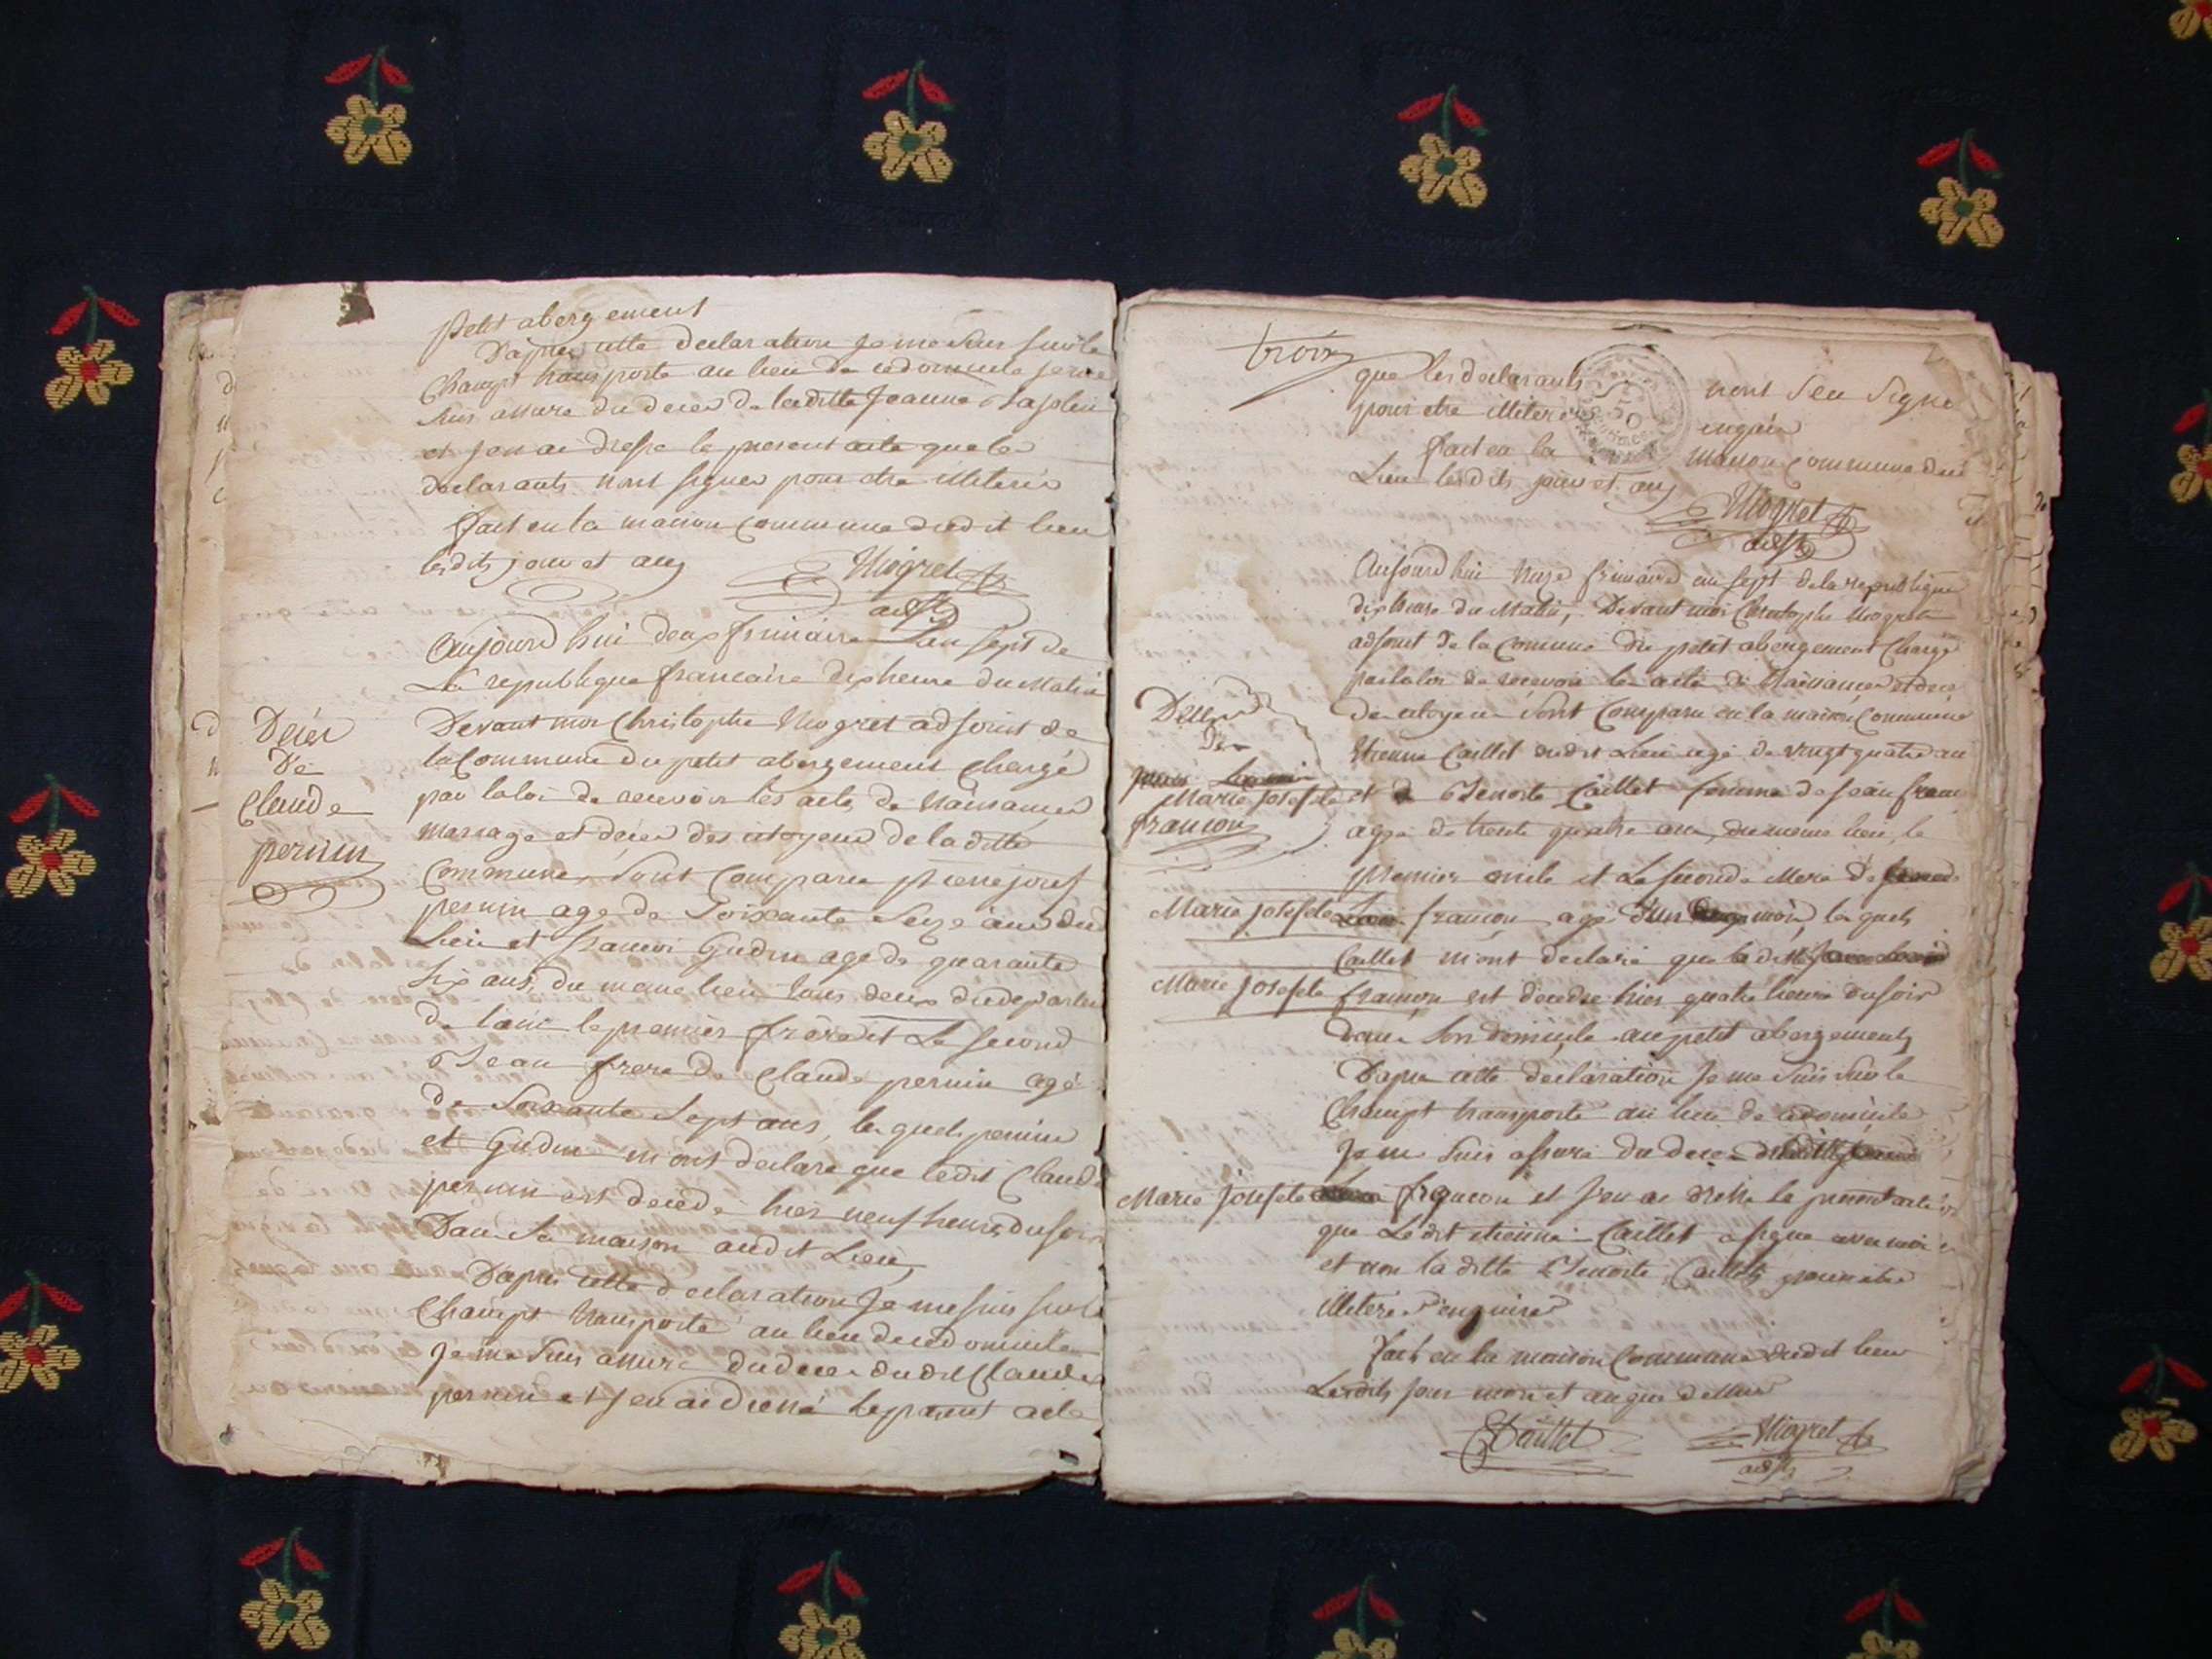 petit abergement
D'apres cette declaration je me suis sur le
Champt transporté au lieu de ce domicile je me
suis assuré du deces de laditte Jeanne
et jen ai dressé le present acte que les
declarants nont signer pour etre illiterés
fait en la maison commune dudit lieu
lesdits jour et an
Niogret
adjt
Aujourd'hui deux frimaire l'an sept de
La republique francaise dix heure du Matin
Deces
De
Claude
pernin
Devant moi Christophe Niogret adjoint de
la Commune du petit abergement Chargé
par la loi de recevoir les acte de Naissances
Mariage et deces des citoyens de la ditte
Commune, sont Comparu pierre josef
pernin age de soixante seize ans dud
Lieu et francoi Gudin age de quarante
six ans, du meme lieu tous deux du departem
de lain le premier frere et Le second
Beau frere de Claude pernin agé
de soixante sept ans, lesquels pernin
et Gudin m'ont declare que ledit Claude
pernin est decede hier neuf heures du soir
Dans sa maison audit Lieu,
D'apres cette declaration Je me suis sur le
Champt transporté au lieu de ce domicile
Je me suis assuré du deces dudit Claude
pernin et j'en ai dressé le present acte
trois
que les declarants nont seu signe
pour etre illiteré enquis
fait en la maison commune dud
Lieu lesdits jour et an
Niogret
adjt
Aujourd'hui onze frimaire an sept de la republique
dix heure du Matin, Devant moi Christophe Niogret
adjoint de la Comune du petit abergement Chargé
par la loi de recevoir les acte de Naissances et deces
de citoyens sont Comparu en la maison Commune
Deces
De
Marie Josefete
francon
Etienne Caillet dudit Lieu agé de vingt quatre an
et de Benoite Caillet femme de jean francon
agée de trente quatre ans, du meme lieu, le
premier oncle et La seconde Mere de
Marie josefete francon agé d'un mois, les quels
Caillet m'ont declaré que la ditte
Marie josefete francon est decedée hier quatre heure du soir
dans son domicile au petit abergement,
D'apres cette declaration je me suis sur le
Champt transporté au lieu de ce domicile
Je me suis assuré du deces de laditte
Marie josefete francon et j'en ai dressé le present acte
que Ledit etienne Caillet a signé avec moi
et non la ditte Benoite Caillet pour etre
illiterée enquise
fait en la maison Commune dudit lieu
Lesdits jour mois et an que dessus
E Caillet
Niogret
adjt